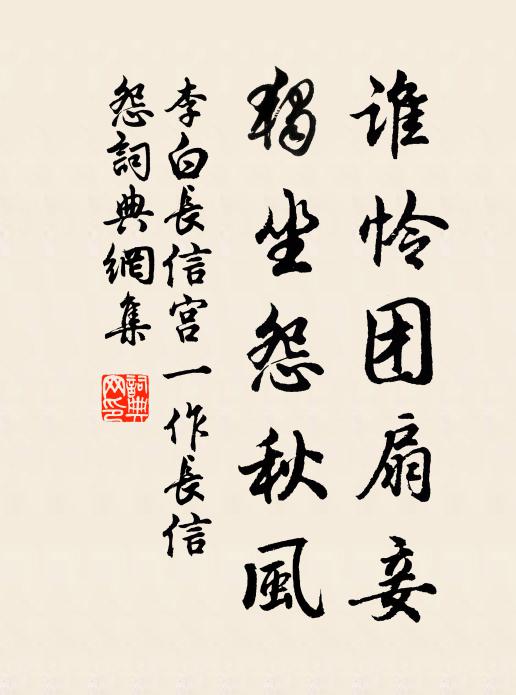 谁怜团扇妾
獨坐怨秋風
李白長信宮一作長信
怨詞典網集
詞典
网印